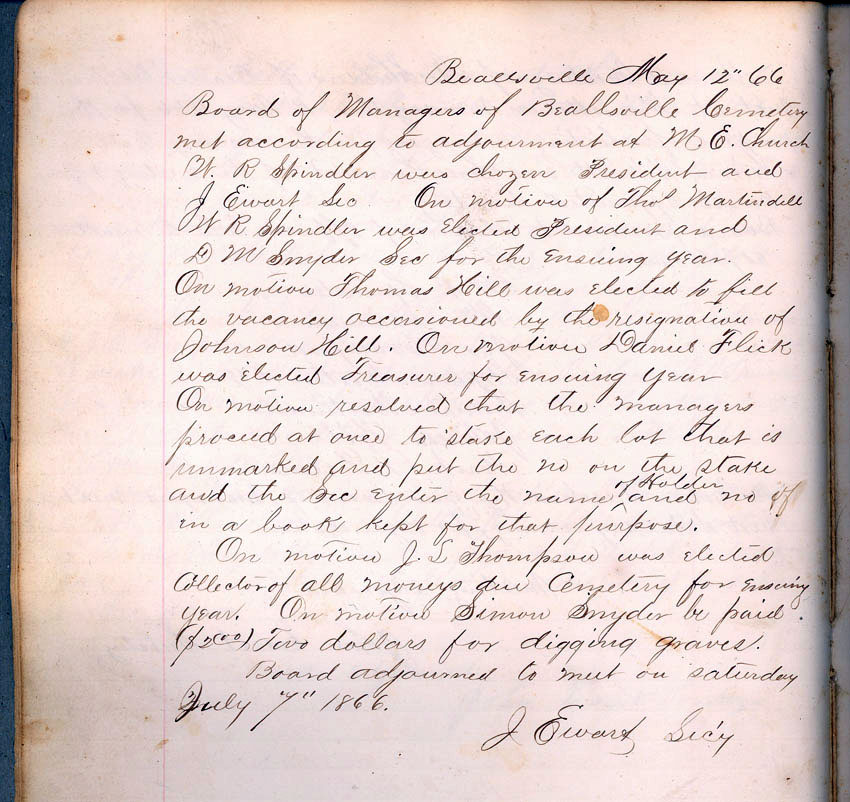 Beallsville May 12" 66
Board of Managers of Beallsville Cemetery
met according to adjourment at M E. Church
W. R Spindler was chozen President and
J Ewart Sec On motion of Thos Martindell
W R Spindler was Elected President and
D M Snyder Sec for the ensuing year.
On motion Thomas Hill was elected to fill
the vacancy occasioned by the resignation of
Johnson Hill. On motion Daniel Flick
was elected Treasurer for ensuing Year
On motion resolved that the managers
proceed at once to stake each lot that is
unmarked and put the no on the stake
and the Sec enter the name of Holder and no of
in a book kept for that purpose.
On motion J. L Thompson was elected
Collector of all moneys due Cemetery for ensuing
year. On motion Simon Snyder be paid.
($2.00) Two dollars for digging graves.
Board adjourned to meet on saturday
July "7" 1866.
J Ewart Sec'y